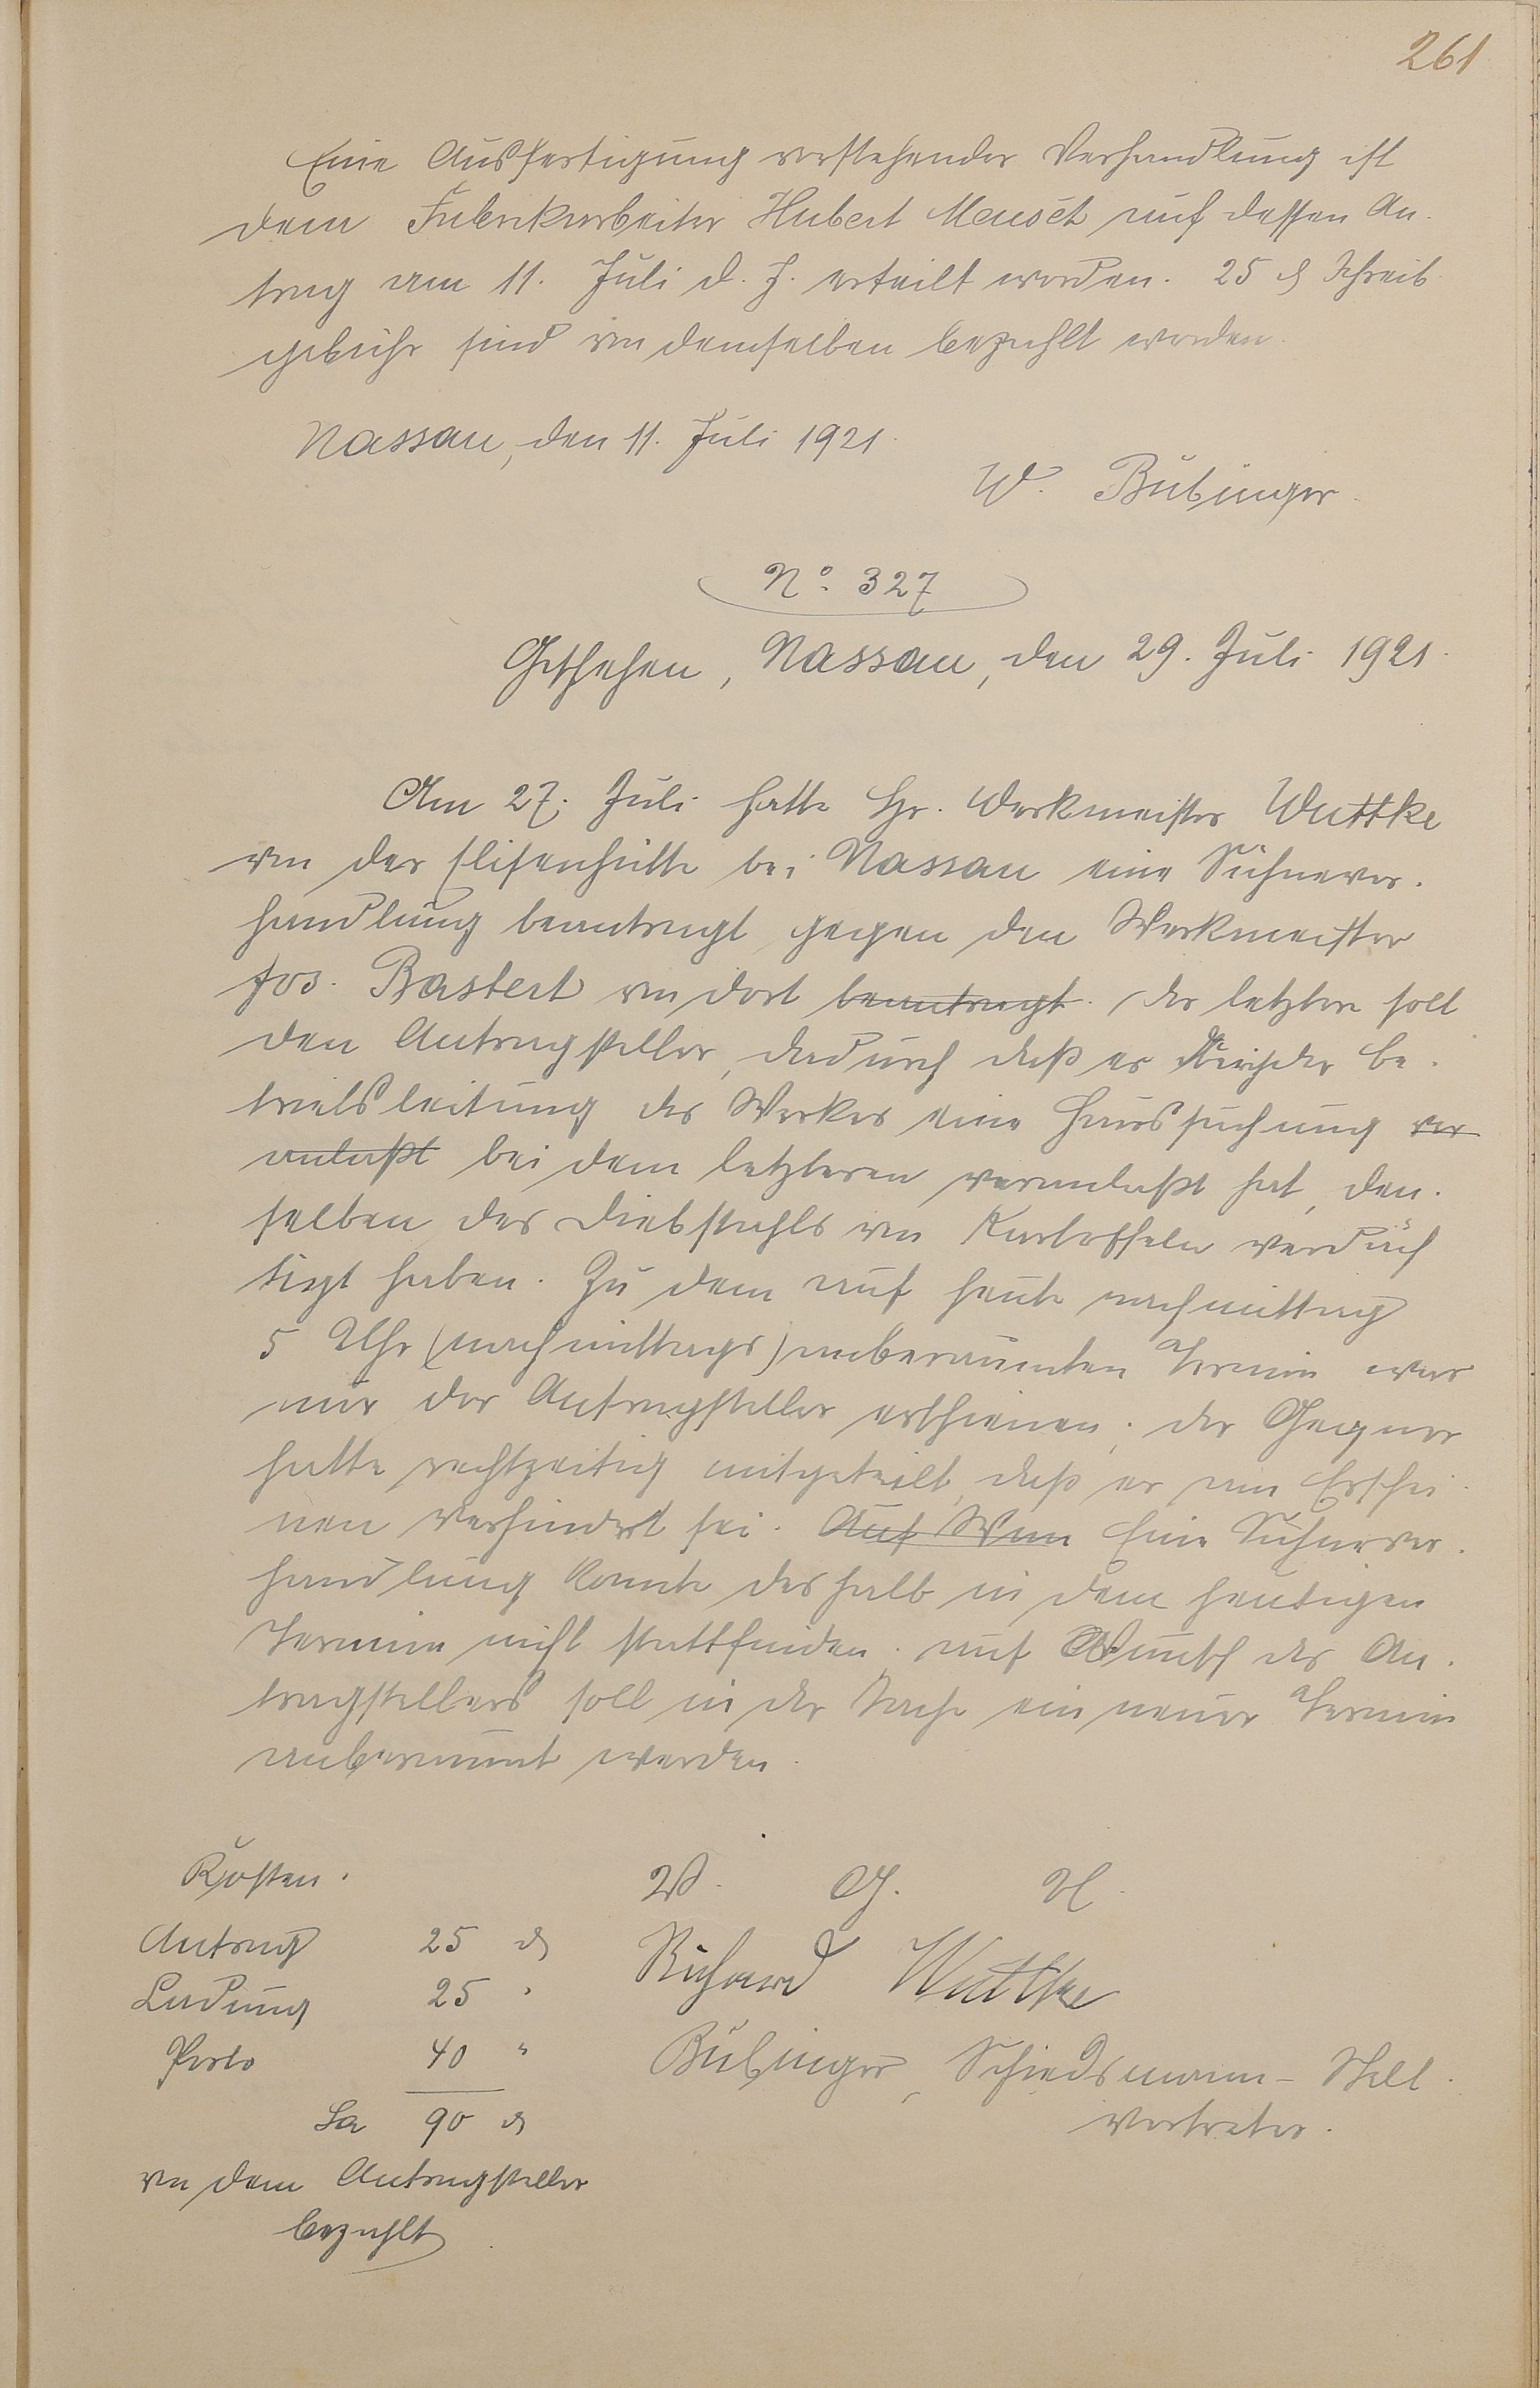 261
Eine Ausfertigung vorstehender Verhandlung ist
dem Fabrikarbeiter Hubert Meuset auf dessen An-
trag am 11. Juli d. J. erteilt worden. 25 ₰ Schreib
gebühr sind von demselben bezahlt worden.
Nassau, den 11. Juli 1921.
W. Bübinger.
No. 327
Geschehen, Nassau, den 29. Juli 1921.
Am 27. Juli hatte Hr. Werkmeister Wuttke
von der Elisenhütte bei Nassau eine Sühnever-
handlung beantragt gegen den Werkmeister
Jos. Bastert von dort beantragt. Der letztere soll
den Antragsteller, dadurch daß er durch der Be-
triebsleitung des Werkes eine Haussuchung ver
anlaßt bei dem letzteren veranlaßt hat, den-
selben des Diebstahls von Kartoffeln verdäch
tigt haben. Zu dem auf heute nachmittag
5 Uhr (nachmittags) anberaumten Termin war
nur der Antragsteller erschienen; der Gegner
hatte rechtzeitig mitgeteilt, daß er am Erschei-
nen verhindert sei. Auf Wun Eine Sühnever-
handlung konnte deshalb in dem heutigen
Termin nicht stattfinden. auf Wunsch des An-
tragstellers soll in der Sache ein neuer Termin
anberaumt werden.
Kosten.
V. G. U.
Antrag 25 ₰
Richard Wuttke
Ladung 25 "
Porto 40 "
Bübinger, Schiedsmann-Stell-
Sa 90 ₰
vertreter.
von dem Antragsteller
bezahlt